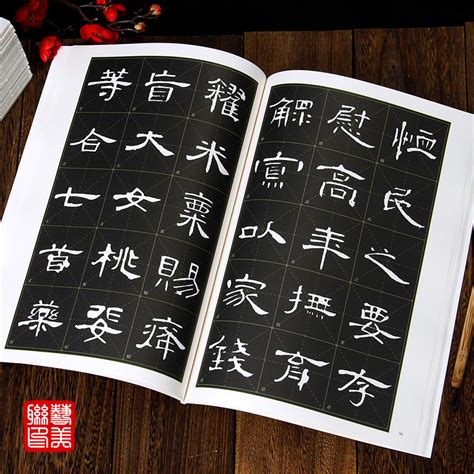 恤民之要存
慰高年撫育
鰥寡以家錢
糴米粟賜癃
盲大女桃婓
等合七首藥
藝美
聯